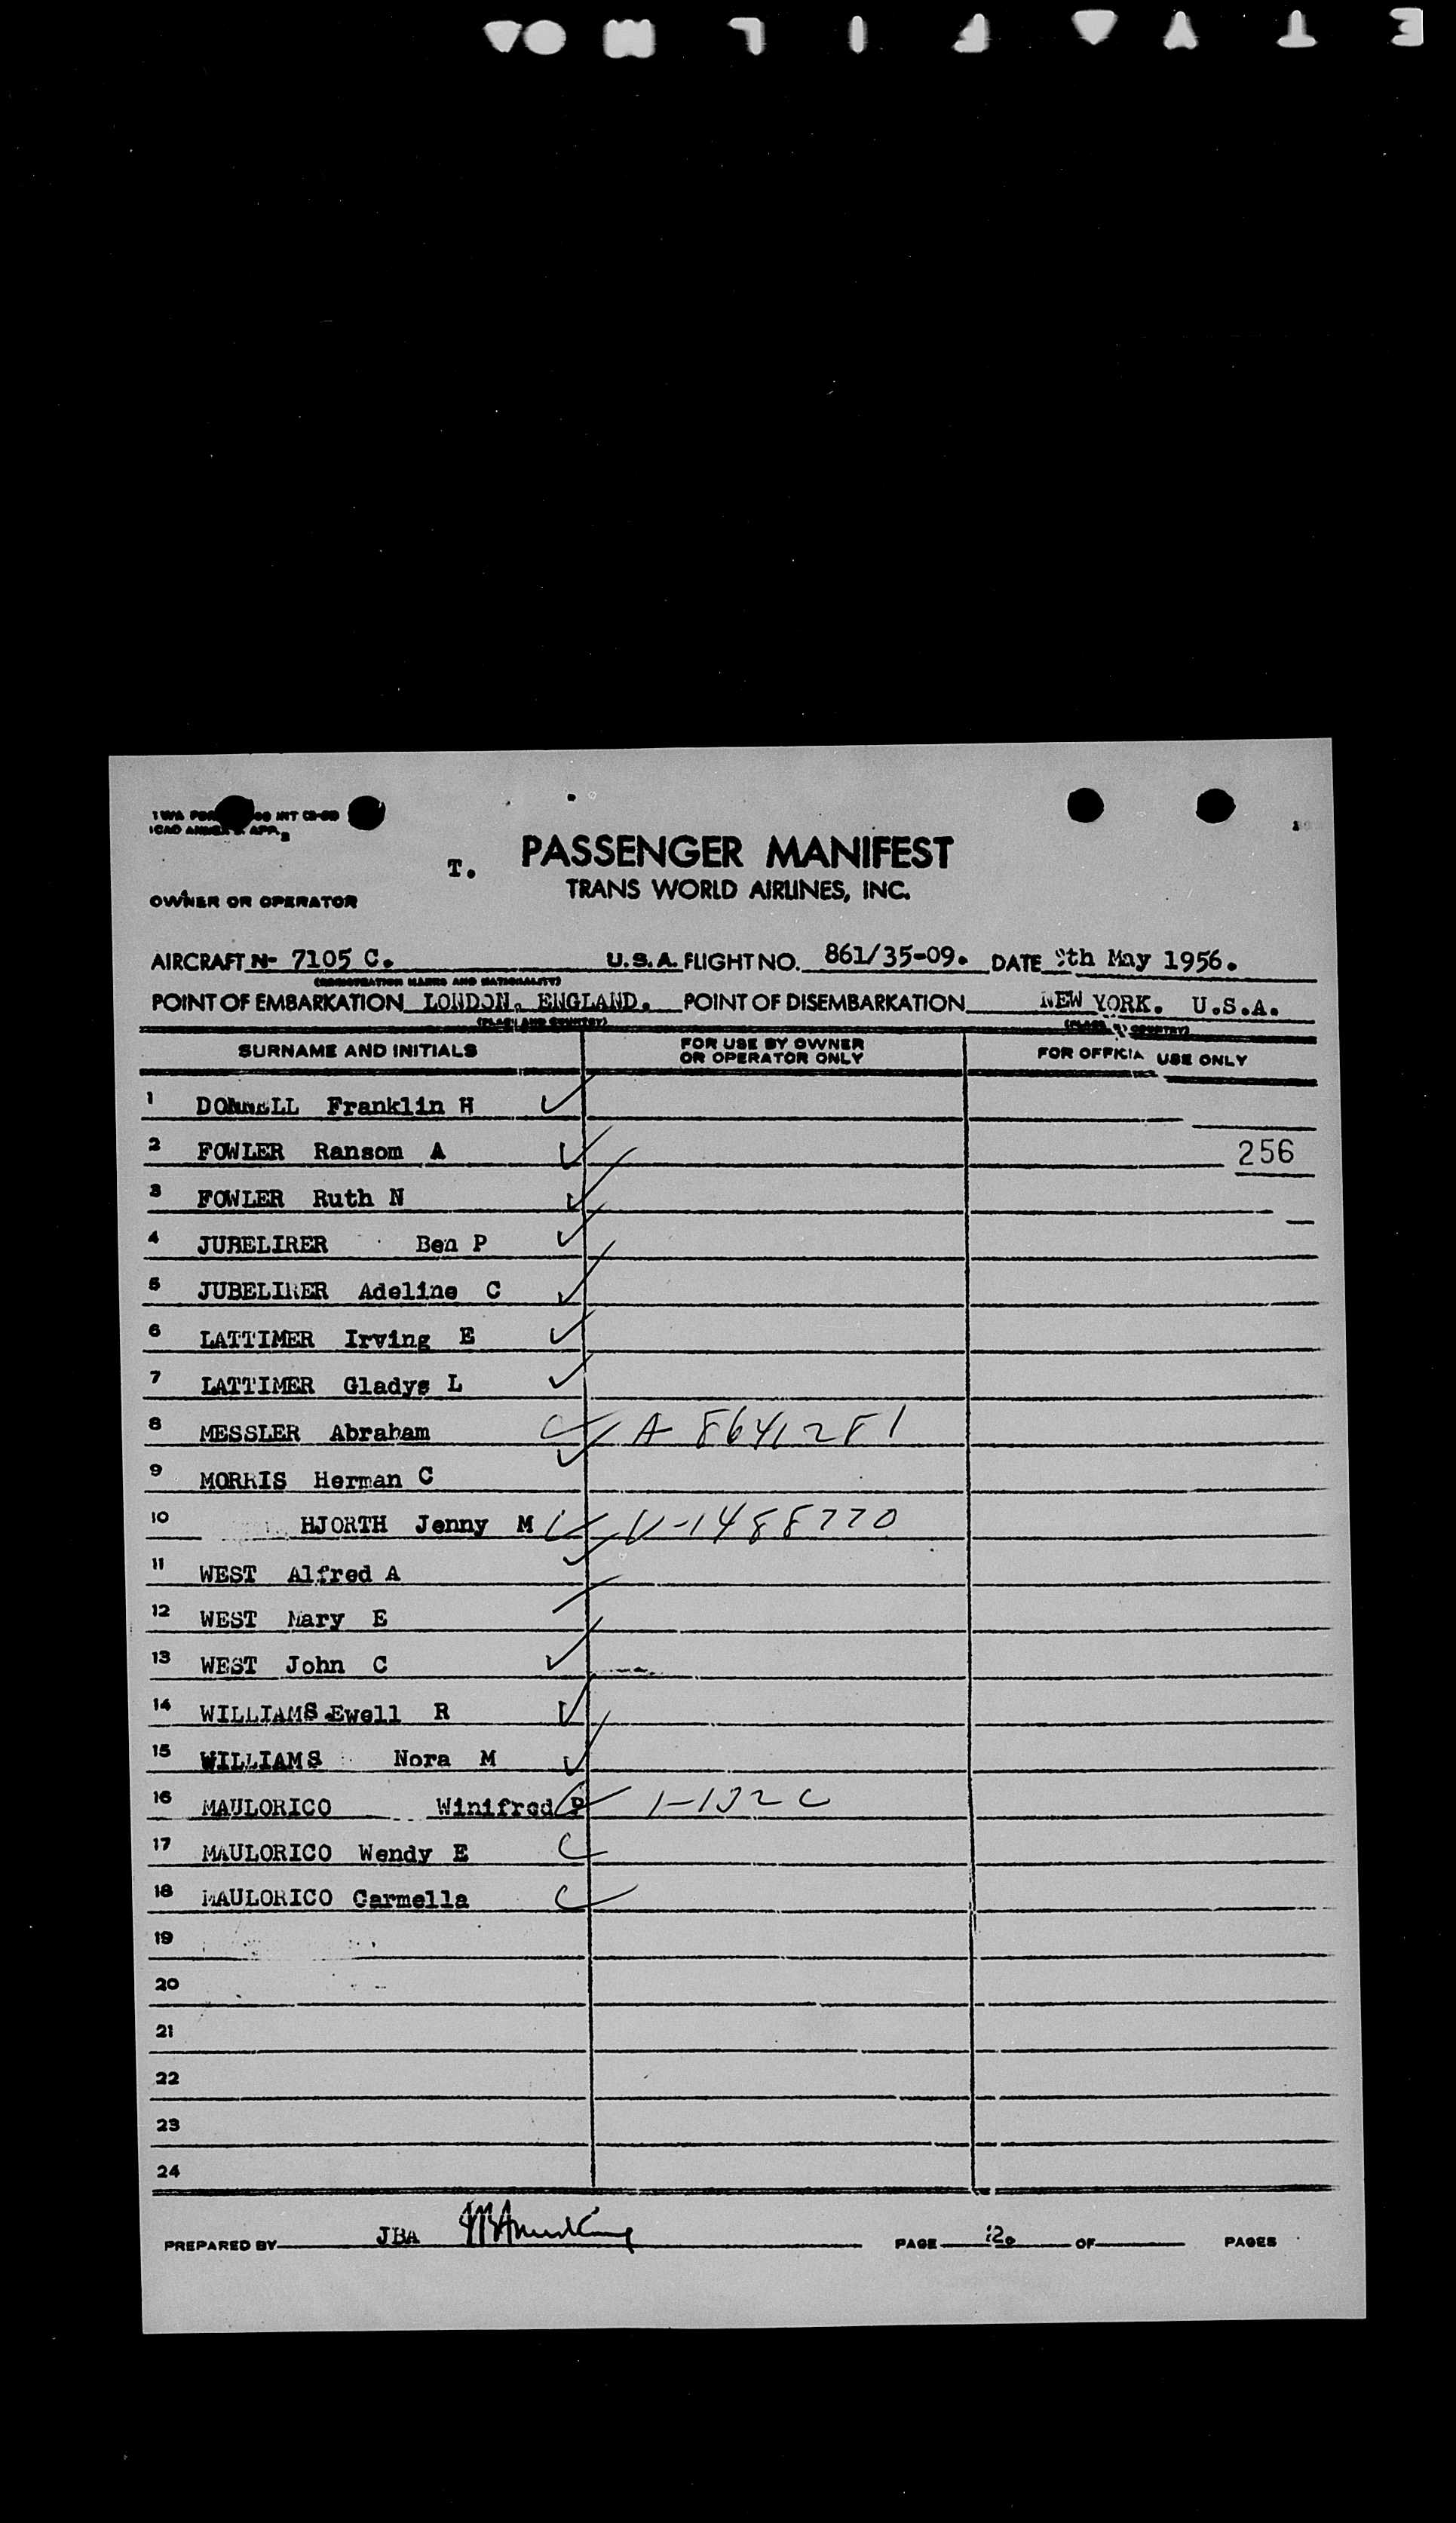 PASSENGER MANIFEST
T.
TRANS WORLD AIRLINES, INC.
OWNER OR OPERATOR
AIRCRAFT N- 7105 C. U.S.A. FLIGHT NO. 861/35-09. DATE 9th May 1956.
(REGISTRATION MARKS AND NATIONALITY)
POINT OF EMBARKATION LONDON. ENGLAND. POINT OF DISEMBARKATION NEW YORK. U.S.A.
(PLACE AND COUNTRY)
SURNAME AND INITIALS FOR USE BY OWNER OR OPERATOR ONLY FOR OFFICIA USE ONLY
1 DONNELL Franklin H
2 FOWLER Ransom A 256
3 FOWLER Ruth N
4 JUBELIRER Ben P
5 JUBELIRER Adeline C
6 LATTIMER Irving E
7 LATTIMER Gladys L
8 MESSLER Abraham A 8641281
9 MORRIS Herman C
10 HJORTH Jenny M V-1488770
11 WEST Alfred A
12 WEST Mary E
13 WEST John C
14 WILLIAMS Ewell R
15 WILLIAMS Nora M
16 MAULORICO Winifred P
17 MAULORICO Wendy E
18 MAULORICO Carmella
19
20
21
22
23
24
PREPARED BY JBA PAGE 2. OF PAGES